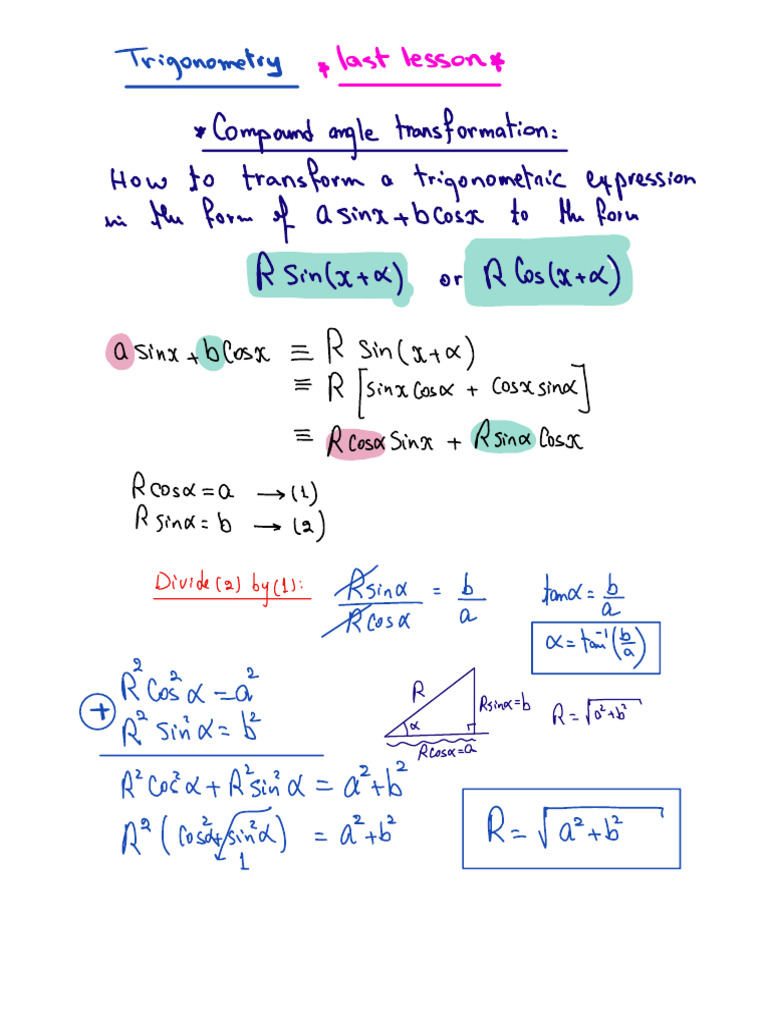 Trigonometry * last lesson *
* Compound angle transformation:
How to transform a trigonometric expression
in the form of a sinx + b cosx to the form
R Sin(x+α) or R Cos(x+α)
a sinx + b Cosx ≡ R Sin(x+α)
≡ R [sinx Cosα + Cosx sinα]
≡ R Cosα Sinx + R Sinα Cosx
R cosα = a → (1)
R sinα = b → (2)
Divide (2) by (1): R sinα / R Cosα = b/a tanα = b/a
α = tan⁻¹(b/a)
R² Cos² α = a²
+
R² Sin² α = b²
R R sinα = b α R cosα = a R = √a²+b²
R² Cos² α + R² sin² α = a² + b²
R² (Cos²α + sin² α) = a² + b²
1
R = √a² + b²